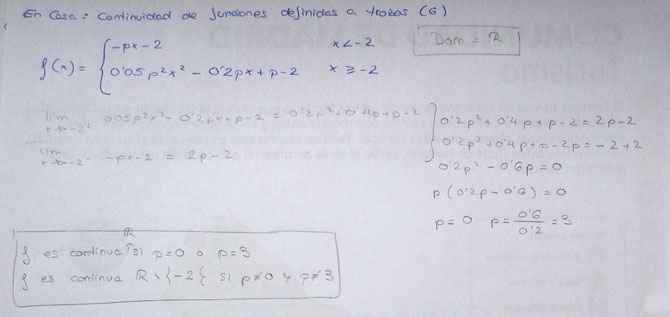 En Casa: Continuidad de funciones definidas a trozos (6)
f(x) = { -px - 2 x < -2
0'05p²x² - 0'2px + p - 2 x ≥ -2
Dom = ℝ
lim x→-2⁺ 0'05p²x² - 0'2px + p - 2 = 0'2p² + 0'4p + p - 2
lim x→-2⁻ -px - 2 = 2p - 2
0'2p² + 0'4p + p - 2 = 2p - 2
0'2p² + 0'4p + p - 2p = -2 + 2
0'2p² - 0'6p = 0
p(0'2p - 0'6) = 0
p = 0 p = 0'6/0'2 = 3
f es continua ℝ si p = 0 o p = 3
f es continua ℝ \ {-2} si p ≠ 0 y p ≠ 3